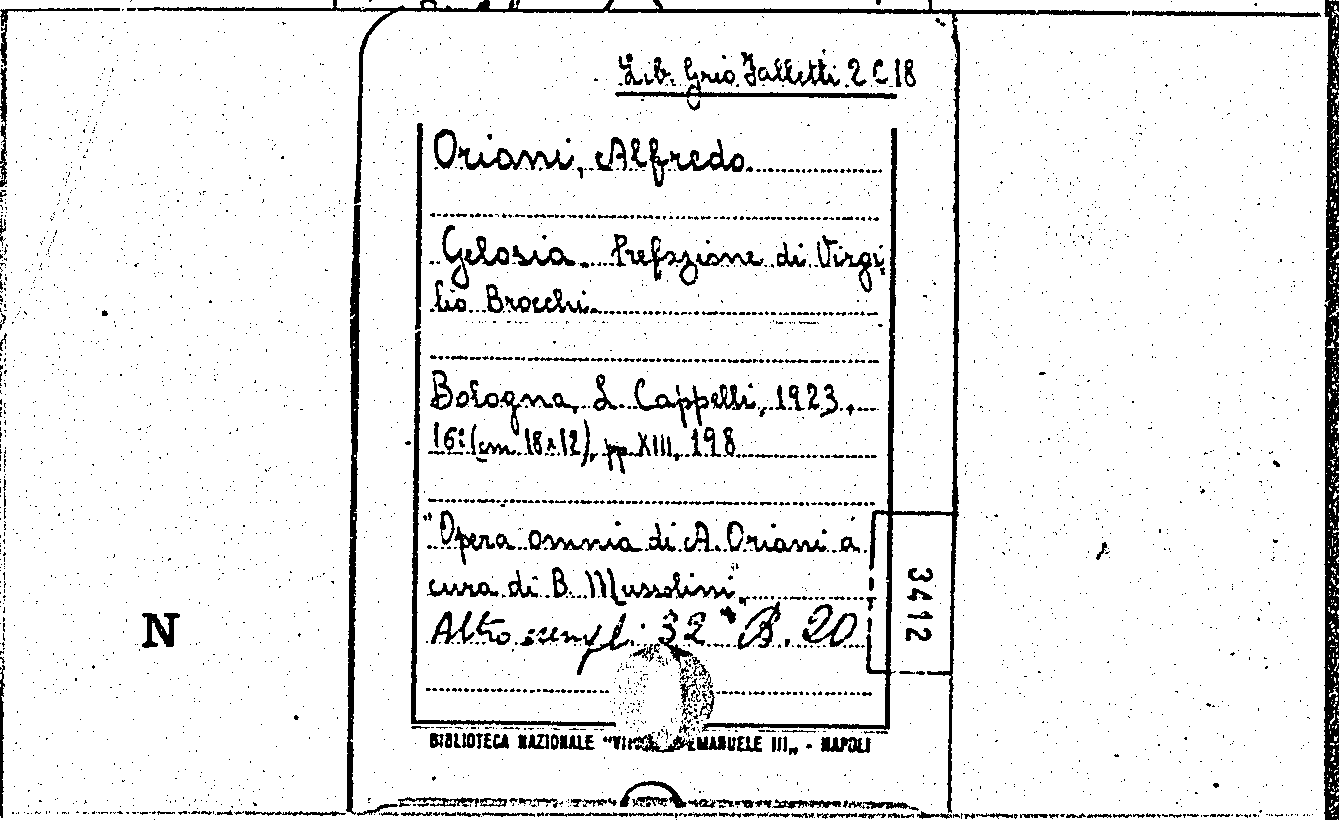 Lib. Grio Falletti 2 C 18
Oriani, Alfredo.
Gelosia. Prefazione di Virgi
lio Brocchi.
Bologna, L. Cappelli, 1923.
16: (cm 18x12), pp XIII, 198
"Opera omnia di A. Oriani a
cura di B. Mussolini„
Altro esempl. 32 B. 20
3412
N
BIBLIOTECA NAZIONALE "VITTORIO EMANUELE III„ - NAPOLI